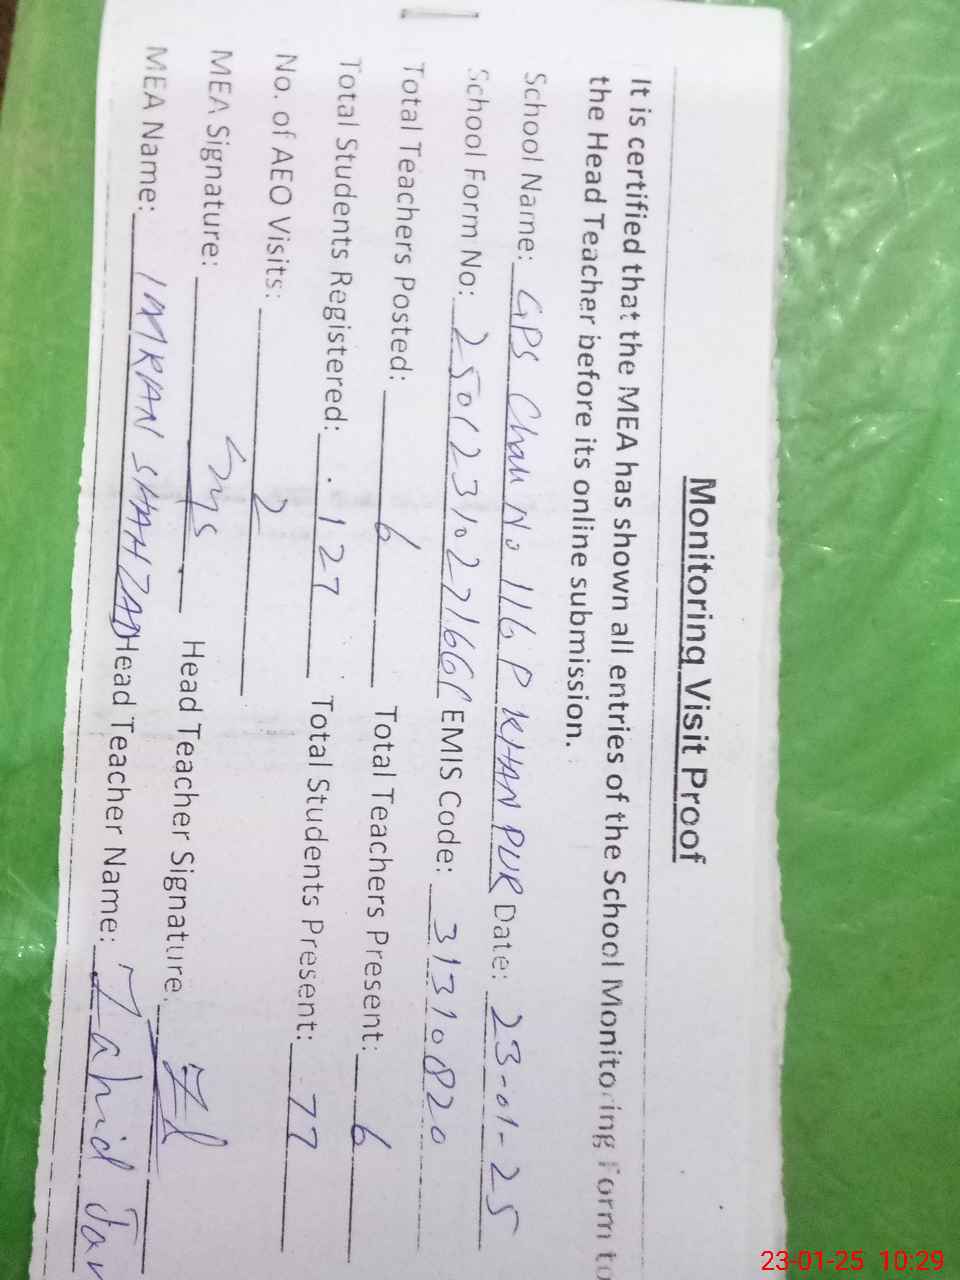 Monitoring Visit Proof
It is certified that the MEA has shown all entries of the School Monitoring Form to
the Head Teacher before its online submission.
School Name: GPS Chak No 116 P KHAN PUR Date: 23-01-25
School Form No: EMIS Code: 31310820
Total Teachers Posted: 6 Total Teachers Present: 6
Total Students Registered: 127 Total Students Present: 77
No. of AEO Visits: 2
MEA Signature: Head Teacher Signature:
MEA Name: IMRAN SHAHZAD Head Teacher Name: Zahid
23-01-25 10:29